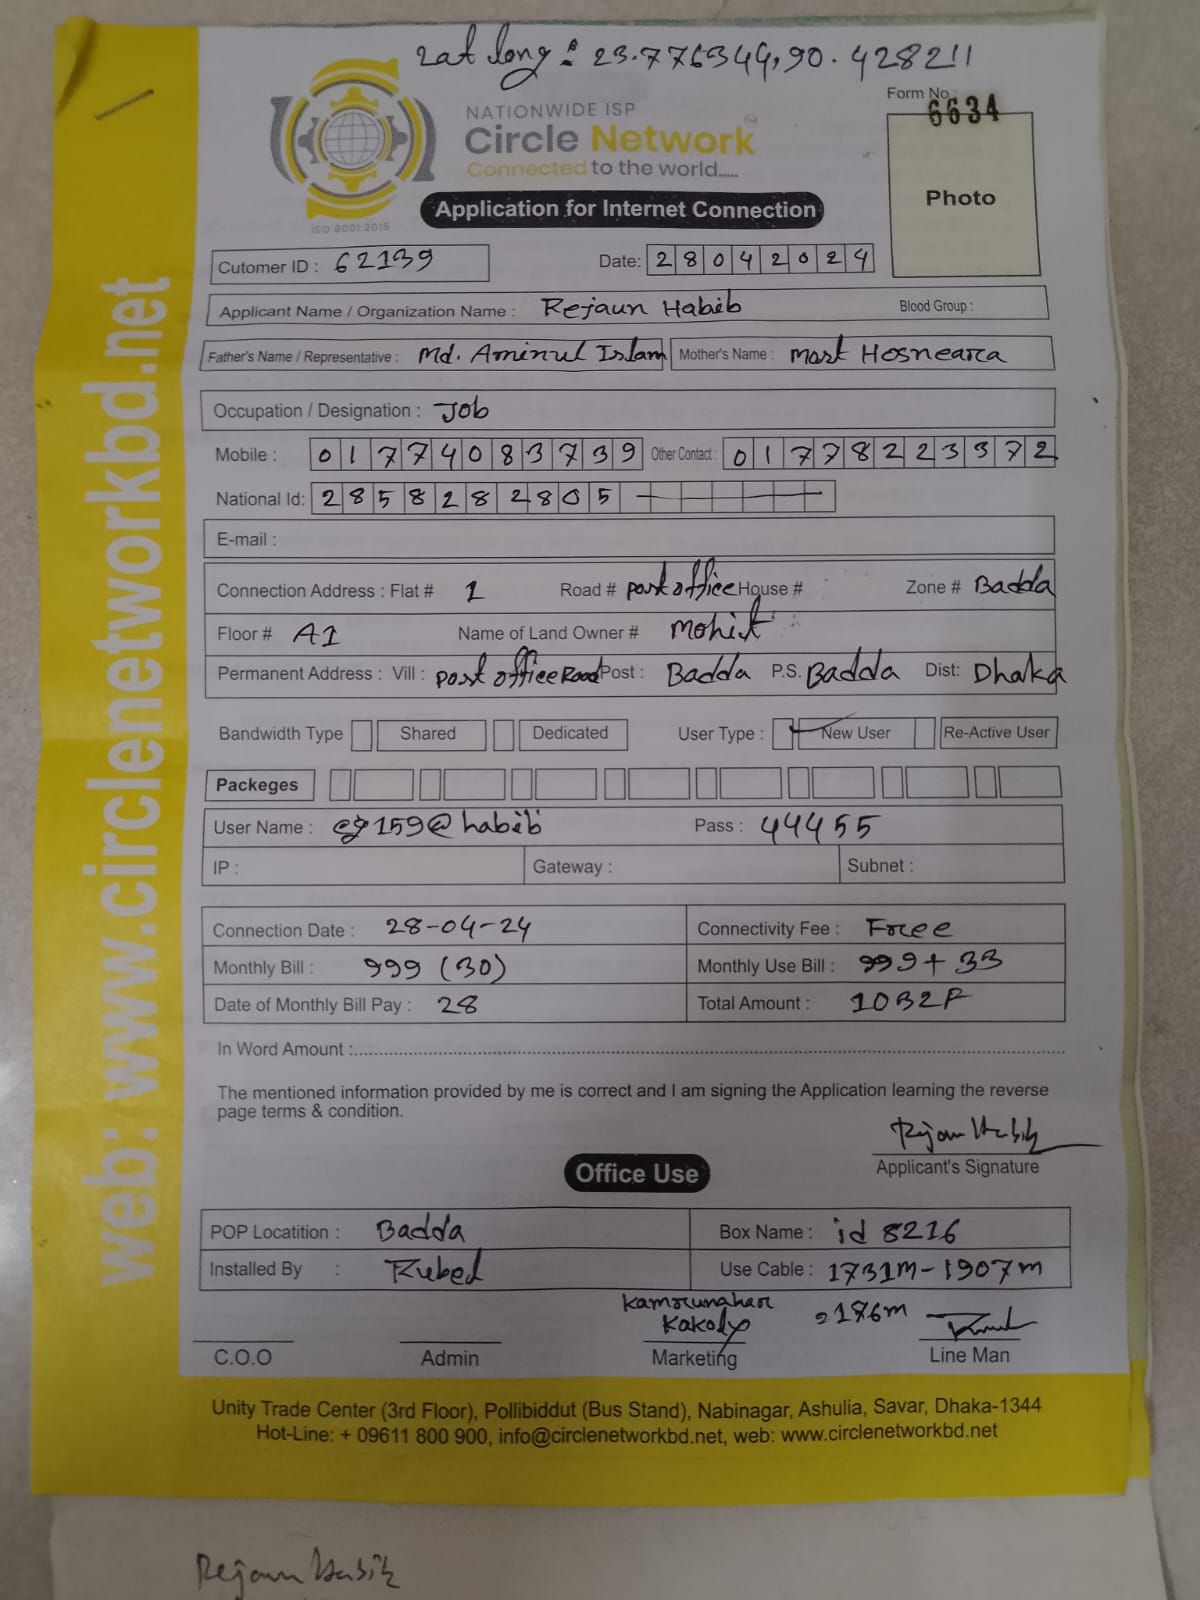 Lat long : 23.776344,90.428211
Form No.: 6634
NATIONWIDE ISP
Circle Network
Connected to the world.....
ISO 9001:2015
Photo
Application for Internet Connection
Cutomer ID : 62139 Date: 28042024
Applicant Name / Organization Name : Rejaun Habib Blood Group :
Father's Name / Representative : Md. Aminul Islam Mother's Name : Most Hosneara
Occupation / Designation : Job
Mobile : 01774083739 Other Contact : 01778223372
National Id: 2858282805
E-mail :
Connection Address : Flat # 1 Road # post office House # Zone # Badda
Floor # A1 Name of Land Owner # Mohit
Permanent Address : Vill : post office Road Post : Badda P.S. Badda Dist: Dhaka
Bandwidth Type Shared Dedicated User Type : New User Re-Active User
Packeges
User Name : 159@habib Pass : 44455
IP : Gateway : Subnet :
Connection Date : 28-04-24 Connectivity Fee : Free
Monthly Bill : 999 (30) Monthly Use Bill : 999+33
Date of Monthly Bill Pay : 28 Total Amount : 1032
In Word Amount :
The mentioned information provided by me is correct and I am signing the Application learning the reverse
page terms & condition.
Rejaun Habib
Applicant's Signature
Office Use
POP Locatition : Badda Box Name : id 8216
Installed By : Rubed Use Cable : 1731m-1907m
Kamrunahar
Kakoly
176m
C.O.O Admin Marketing Line Man
Unity Trade Center (3rd Floor), Pollibiddut (Bus Stand), Nabinagar, Ashulia, Savar, Dhaka-1344
Hot-Line: + 09611 800 900, info@circlenetworkbd.net, web: www.circlenetworkbd.net
web: www.circlenetworkbd.net
Rejaun Habib